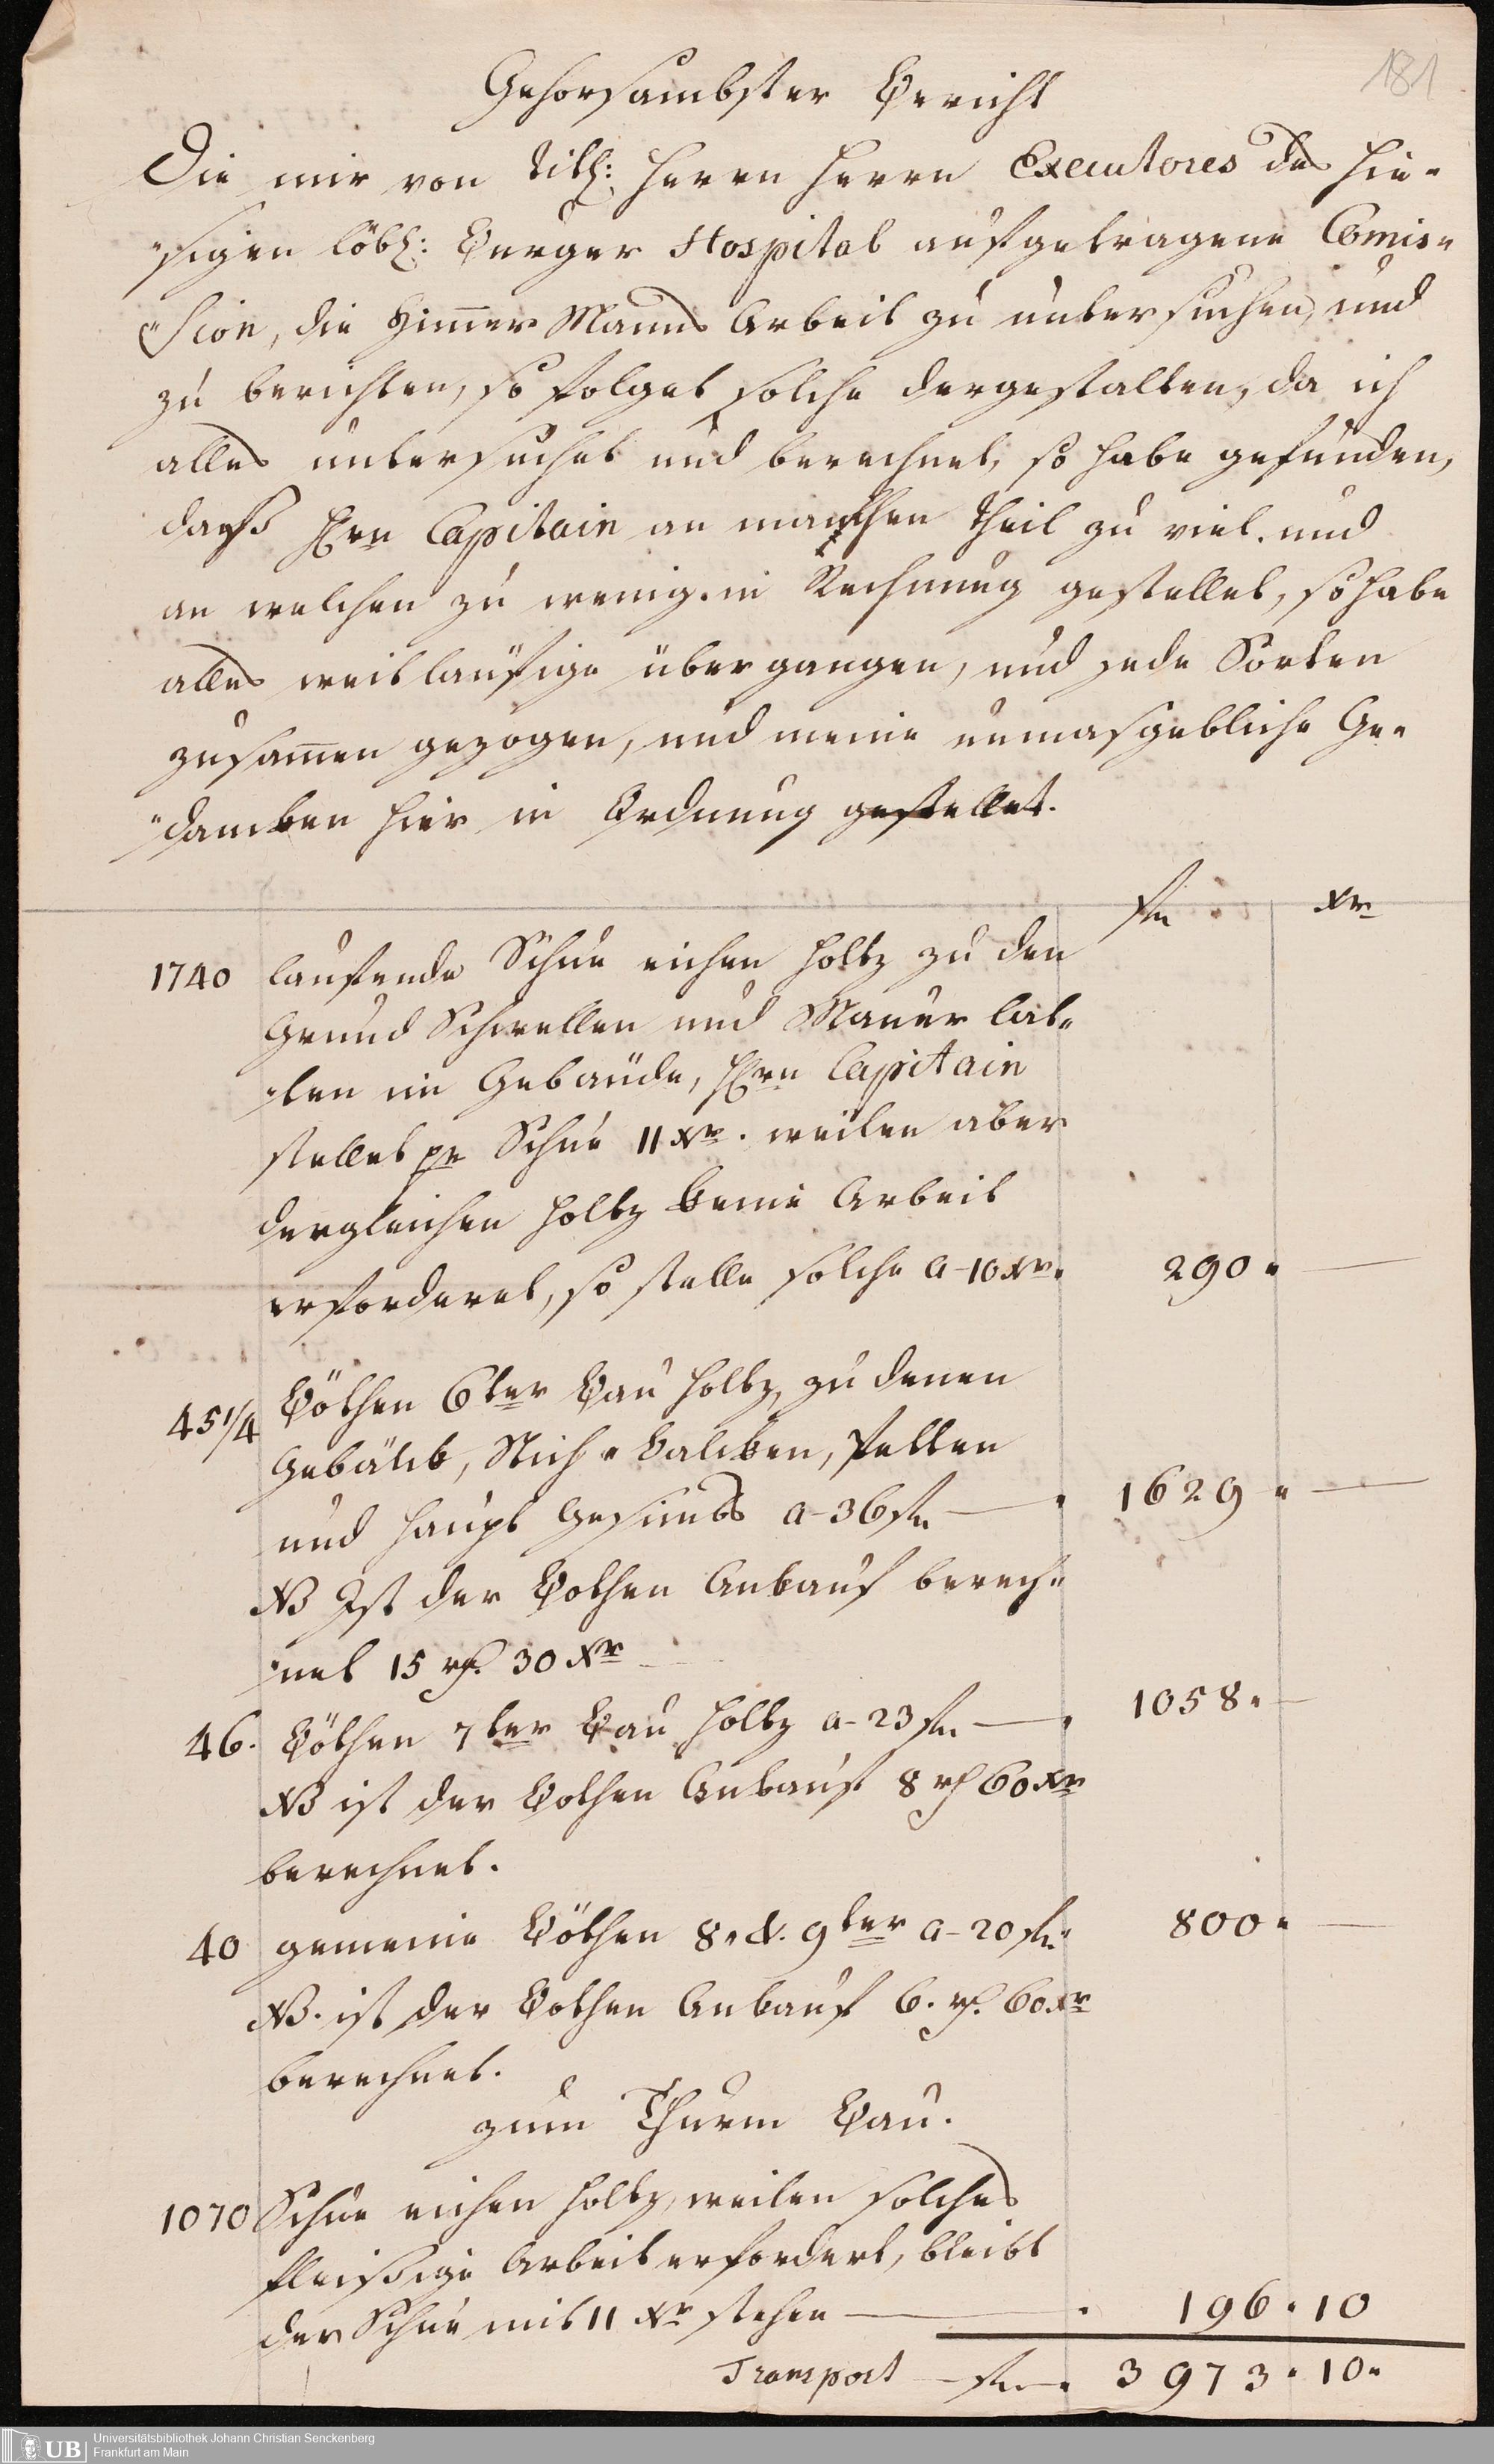 181
Gehorsambster Bericht
Die mir von titl: Herrn Herrn Executores des hie-
"sigen löbl: Burger Hospital aufgetragene Comis-
"sion, die Zimer Manns Arbeit zu untersuchen, und
zu berichten, so folget solche dergestalten, da ich
alles untersuchet und berechnet, so habe gefunden,
dass Hrn Capitain an manchen theil zu viel. und
an welchen zu wenig. in Rechnung gestellet, so habe
alles weitläuftige übergangen, und jede Sorten
zusamen gezogen, und meine unmasgebliche Ge-
"dancken hier in Ordnung gestellet.
fl Xr
1740 lauffende Schue eichen Holtz zu den
Grund Schwellen und Mauer lat-
"ten im Gebäude, Hrn Capitain
stellet pr Schue 11 Xr. weilen aber
dergleichen Holtz keine Arbeit
erforderet, so stelle solche a-10 Xr. 290. —
45 1/4 Böthen 6ter Bau Holtz, zu denen
Gebälck, Stich-Balcken, Fetten
und Haupt Gesimbs a-36 fl — 1629 —
NB Ist der Bothen Ankauf berech-
"net 15 rf. 30 Xr
46. Böthen 7ter Bau Holtz a-23 fl. — 1058. —
NB ist der Bothen Ankauf 8 rf 60 Xr
berechnet.
40 gemeine Böthen 8. & 9ter a-20 fl. 800. —
NB. ist der Bothen Ankauf 6. rf. 60 Xr
berechnet.
zum Thurm Bau.
1070 Schue eichen Holtz, weilen solches
fleissige Arbeit erfordert, bleibt
der Schue mit 11 Xr stehen — 196. 10
Transport — fl. — 3973. 10.
UB Universitätsbibliothek Johann Christian Senckenberg
Frankfurt am Main